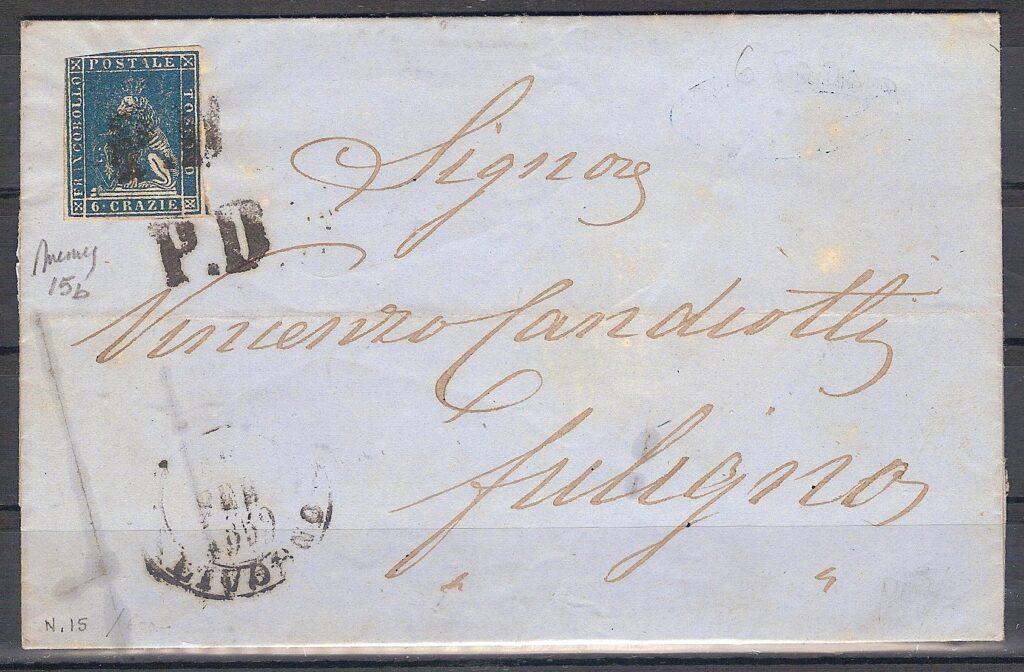 FRANCOBOLLO POSTALE TOSCANO
6 · CRAZIE
6
P.D
15b
Signore
Vincenzo Candiotti
Fuligno
FEB
1859
LIVORNO
N.15